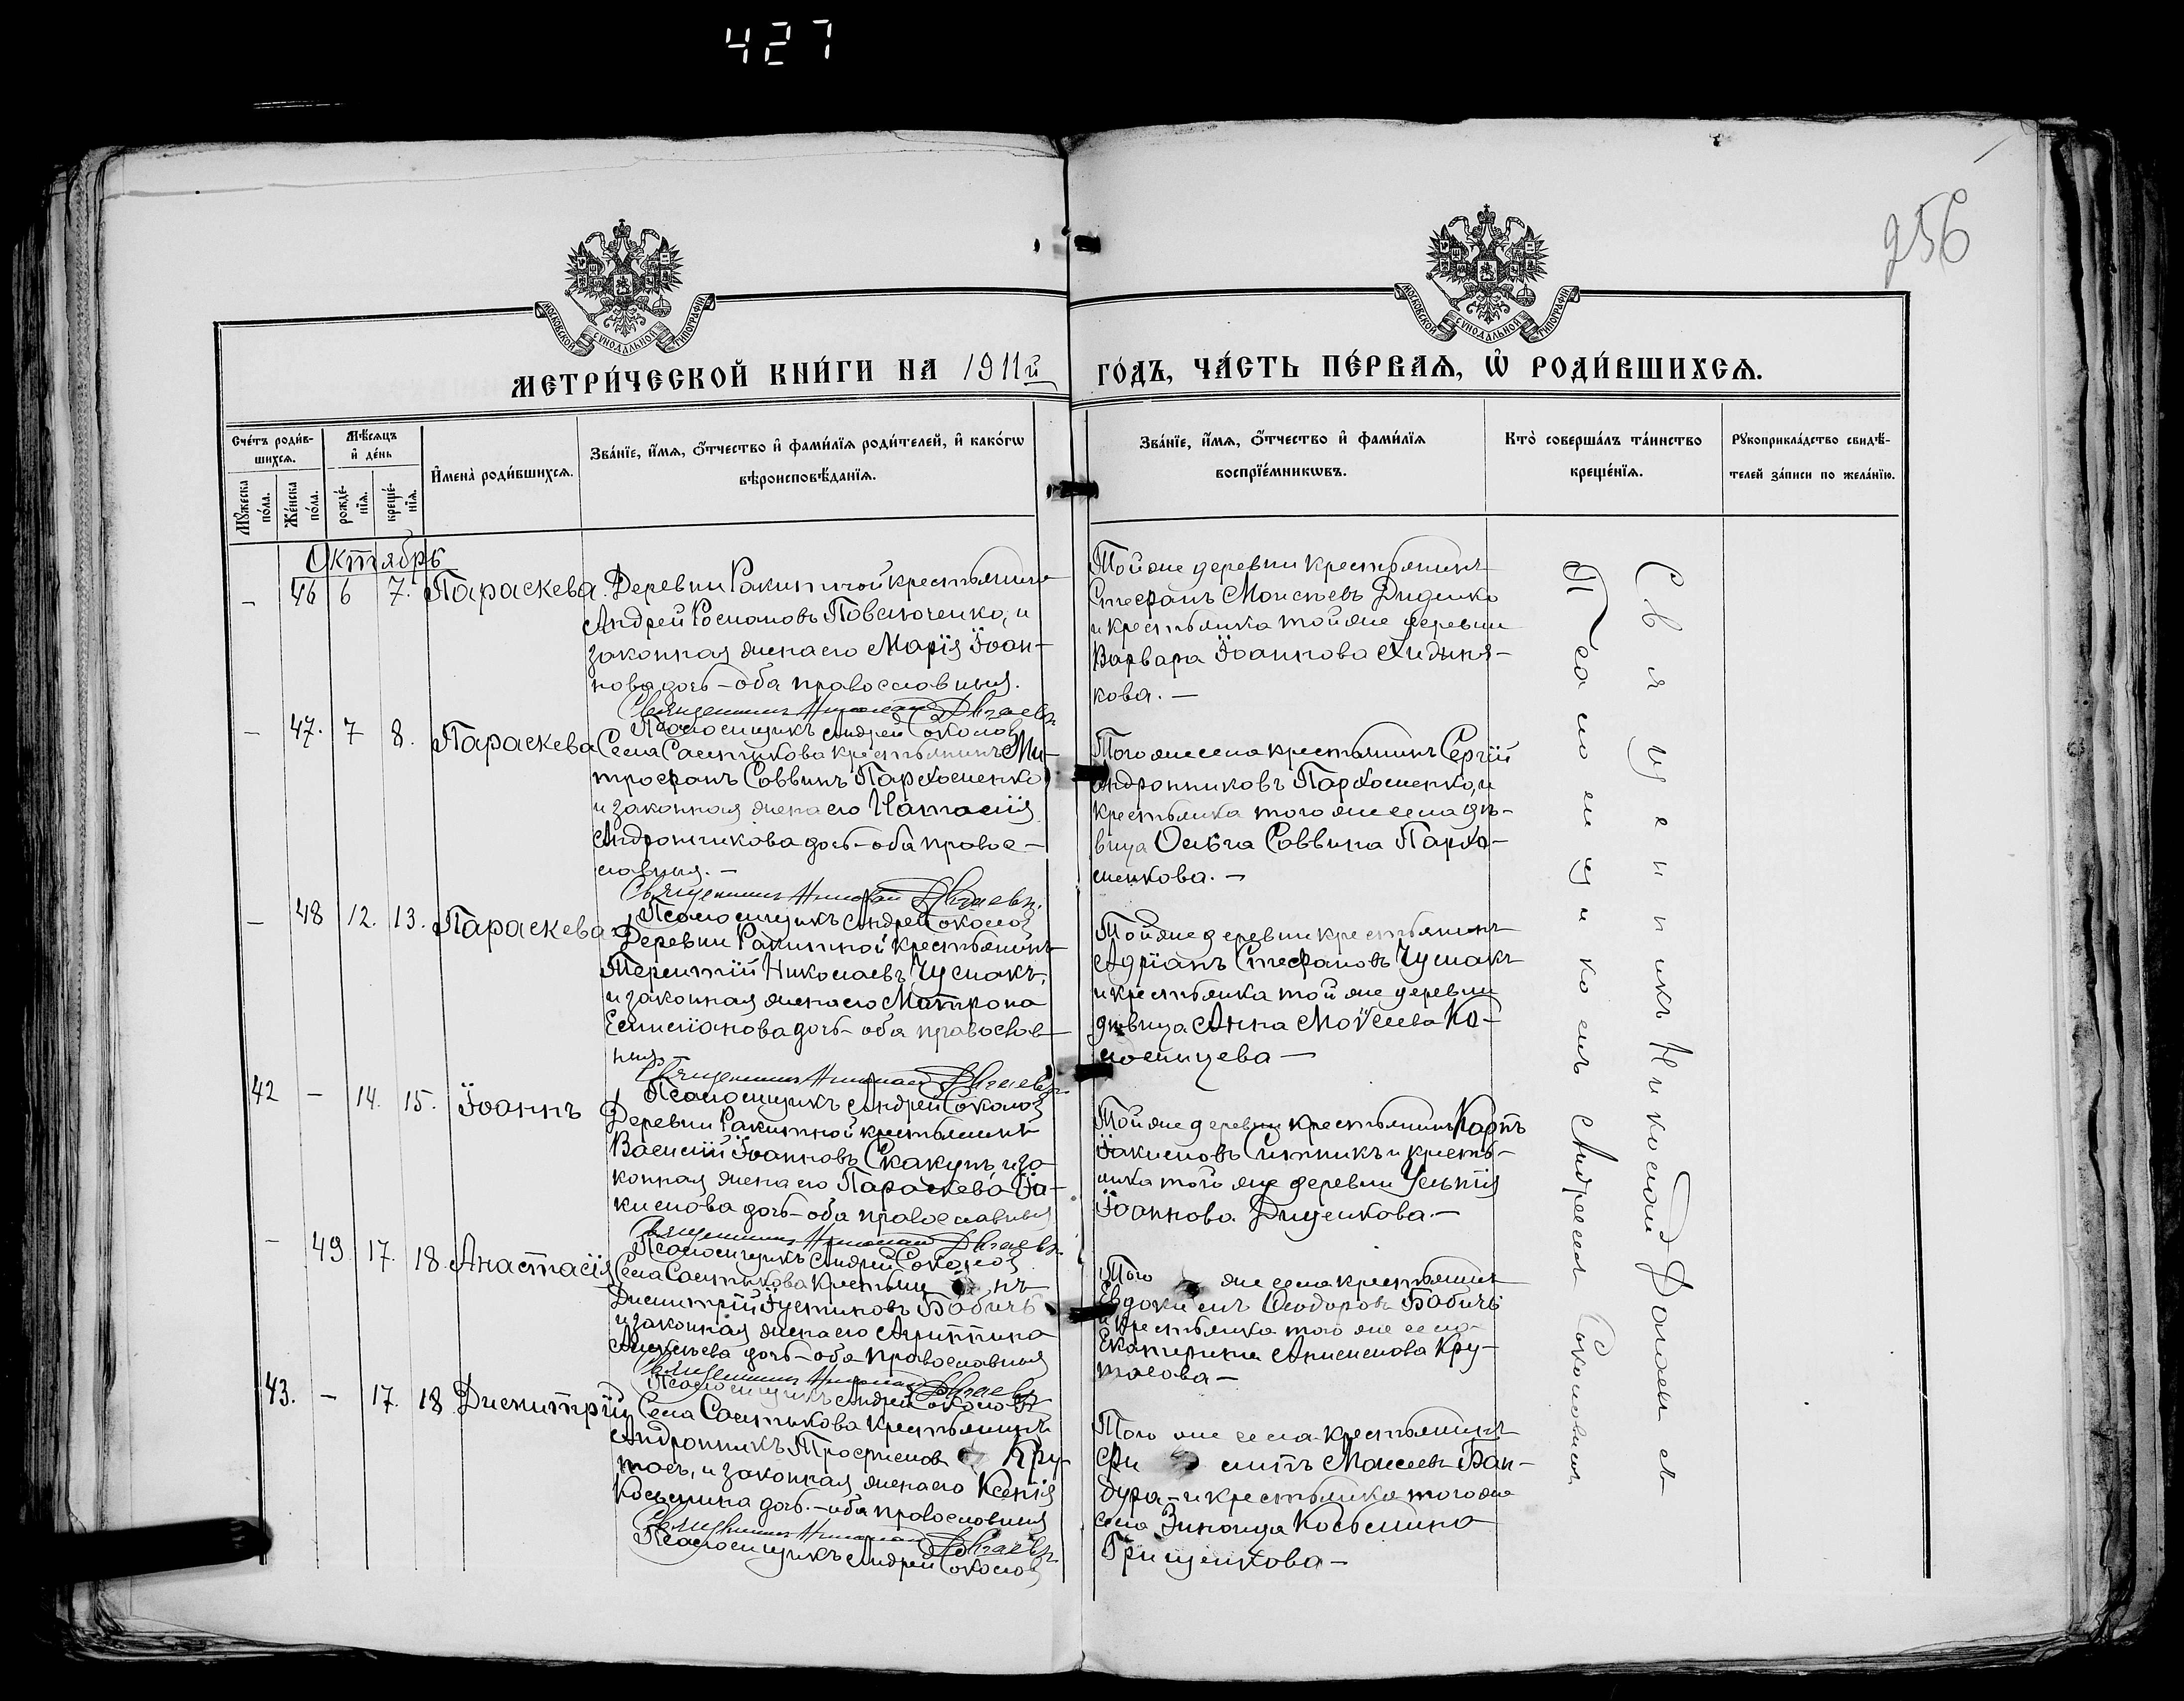 427
256
МОСКОВСКОЙ СѴНОДАЛЬНОЙ ТИПОГРАФІИ
МОСКОВСКОЙ СѴНОДАЛЬНОЙ ТИПОГРАФІИ
МЕТРИ́ЧЕСКОЙ КНИ́ГИ НА 1911й ГО́ДЪ, ЧА́СТЬ ПЕ́РВАѦ, Ѡ҆ РОДИ́ВШИХСѦ.
Сче́тъ роди́в-
шихсѧ.
Мѣ́сѧцъ
и҆ де́нь
Мꙋ́жеска
по́ла.
Же́нска
по́ла.
рожде́-
нїѧ.
креще́-
нїѧ.
И҆мена̀ роди́вшихсѧ.
Зва́нїе, и҆́мѧ, ѻ҆́тчество и҆ фами́лїѧ роди́телей, и҆ како́гѡ
вѣроисповѣ́данїѧ.
Зва́нїе, и҆́мѧ, ѻ҆́тчество и҆ фами́лїѧ
воспрїе́мникѡвъ.
Кто̀ соверша́лъ та́инство
креще́нїѧ.
Рꙋкоприкла́дство свидѣ́-
телей за́писи по жела́нїю.
Октябрь
– 46 6 7. Параскева. Деревни Ракитной крестьянинъ
Андрей Романовъ Повелюченко, и
законная жена его Марія Іоан-
нова дочь – оба православныя.
Священникъ Николай
Псаломщикъ Андрей Соколовъ
Той же деревни крестьянинъ
Стефанъ Моисѣевъ Диденко
и крестьянка той же деревни
Варвара Іоаннова
кова. –
– 47. 7 8. Параскева Села Салтыкова крестьянинъ Ми-
трофанъ Саввинъ Пархоменко
и законная жена его Наталія
Андроникова дочь – оба правос-
лавныя. –
Священникъ Николай
Псаломщикъ Андрей Соколовъ
Того же села крестьянинъ Сергій
Андрониковъ Пархоменко, и
крестьянка того же села дѣ-
вица Ольга Саввина Пархо-
менкова. –
– 48 12. 13. Параскева Деревни Ракитной крестьянинъ
Терентій Николаевъ Чумакъ,
и законная жена его Матрона
Емиліанова дочь – оба православ-
ныя.
Священникъ Николай
Псаломщикъ Андрей Соколовъ
Той же деревни крестьянинъ
Адріанъ Стефановъ Чумакъ
и крестьянка той же деревни
дѣвица Анна Моѵсеева Ко-
ломійцева –
42 – 14. 15. Іоаннъ Деревни Ракитной крестьянинъ
Василій Іоанновъ Скакунъ, и за-
конная жена его Параскева Іа-
кимова дочь – оба православныя
Священникъ Николай
Псаломщикъ Андрей Соколовъ
Той же деревни крестьянинъ Карпъ
Іакимовъ Ситникъ и кресть-
янка той же деревни
Іоаннова Диденкова. –
– 49. 17. 18. Анастасія Села Салтыкова крестьянинъ
Димитрій Іустиновъ Бабичъ
и законная жена его Агриппина
Алексѣева дочь – оба православныя
Священникъ Николай
Псаломщикъ Андрей Соколовъ
Того же села крестьянинъ
Евдокимъ Ѳеодоровъ Бабичъ
и крестьянка того же села
Екатерина Анисимова Кру-
тасова –
43. – 17. 18. Димитрій Села Салтыкова крестьянинъ
Андроникъ Трофимовъ Кру-
тась, и законная жена его Ксенія
Косьмина дочь. – оба православныя
Священникъ Николай
Псаломщикъ Андрей Соколовъ
Того же села крестьянинъ
Филиппъ Моисеевъ Бан-
дура – и крестьянка того же
села Зинаида Косьмина
Грищенкова –
Священникъ Николай
Псаломщикомъ Андреемъ Соколовымъ